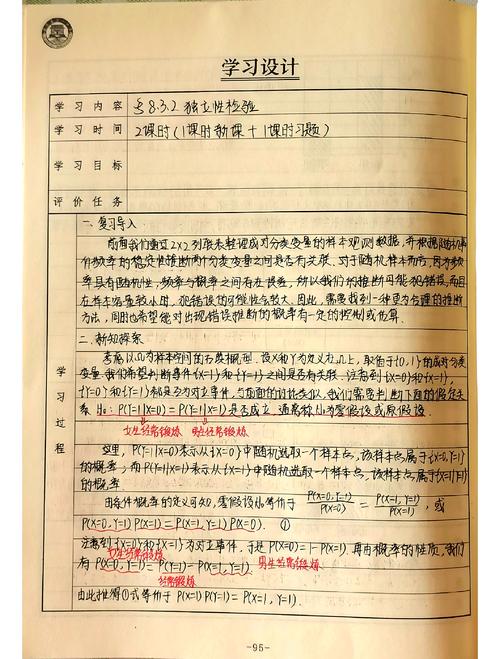 学习设计
学习内容 §8.3.2 独立性检验
学习时间 2课时(1课时新课+1课时习题)
学习目标
评价任务
学习过程
一、复习导入
前面我们通过2×2列联表整理成对分类变量的样本观测数据,并根据随机事
件频率的稳定性推断两个分类变量之间是否有关联.对于随机样本而言,因为频
率具有随机性,频率与概率之间存在误差,所以我们的推断可能犯错误,而且
在样本容量较小时,犯错误的可能性会较大.因此,需要找到一种更为合理的推断
方法,同时也希望能对出现错误推断的概率有一定的控制或估算.
二、新知探索
考虑以Ω为样本空间的古典概型,设X和Y为定义在Ω上,取值于{0,1}的成对分类
变量.我们希望判断事件{X=1}和{Y=1}之间是否有关联.注意到{X=0}和{X=1},
{Y=0}和{Y=1}都是互为对立事件,与前面的讨论类似,我们需要判断下面的假定关
系H₀:P(Y=1|X=0)=P(Y=1|X=1)是否成立,通常称H₀为零假设或原假设.
女生经常锻炼 男生经常锻炼
这里,P(Y=1|X=0)表示从{X=0}中随机选取一个样本点,该样本点属于{X=0,Y=1}
的概率;而P(Y=1|X=1)表示从{X=1}中随机选取一个样本点,该样本点属于{X=1,Y=1}
的概率
由条件概率的定义可知,零假设H₀等价于 P(X=0,Y=1)/P(X=0) = P(X=1,Y=1)/P(X=1),或
P(X=0,Y=1)P(X=1)=P(X=1,Y=1)P(X=0). ①
注意到{X=0}和{X=1}为对立事件,于是P(X=0)=1-P(X=1).再由概率的性质,我们
女生经常锻炼
有P(X=0,Y=1)=P(Y=1)-P(X=1,Y=1). 男生经常锻炼
经常锻炼
由此推得①式等价于P(X=1)P(Y=1)=P(X=1,Y=1).
-95-